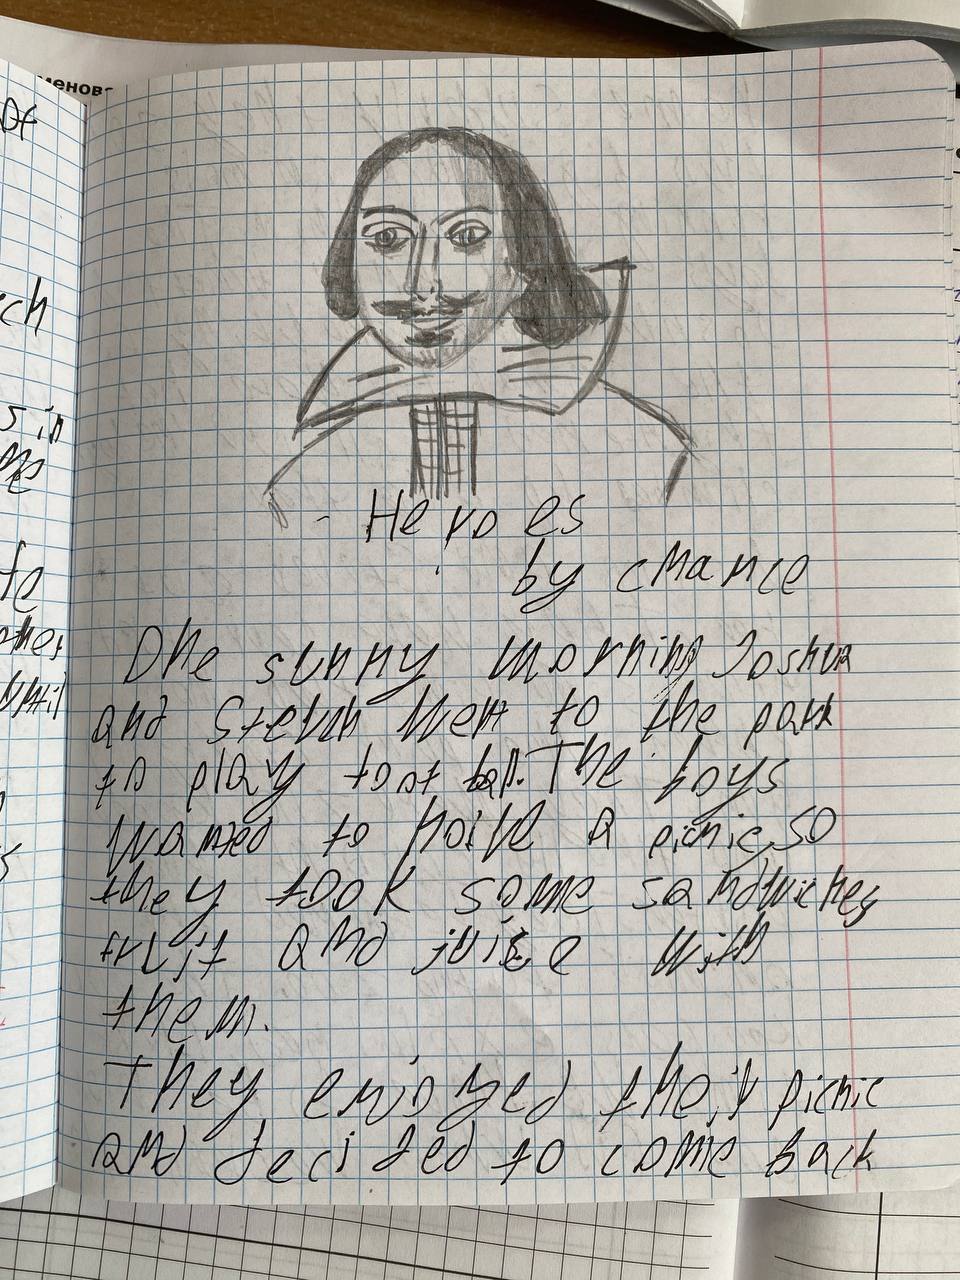 менова
Heroes
by chance
One sunny morning Joshua
and Steven went to the park
to play football. The boys
wanted to have a picnic, so
they took some sandwiches
fruit and juice with
them.
They enjoyed their picnic
and decided to come back